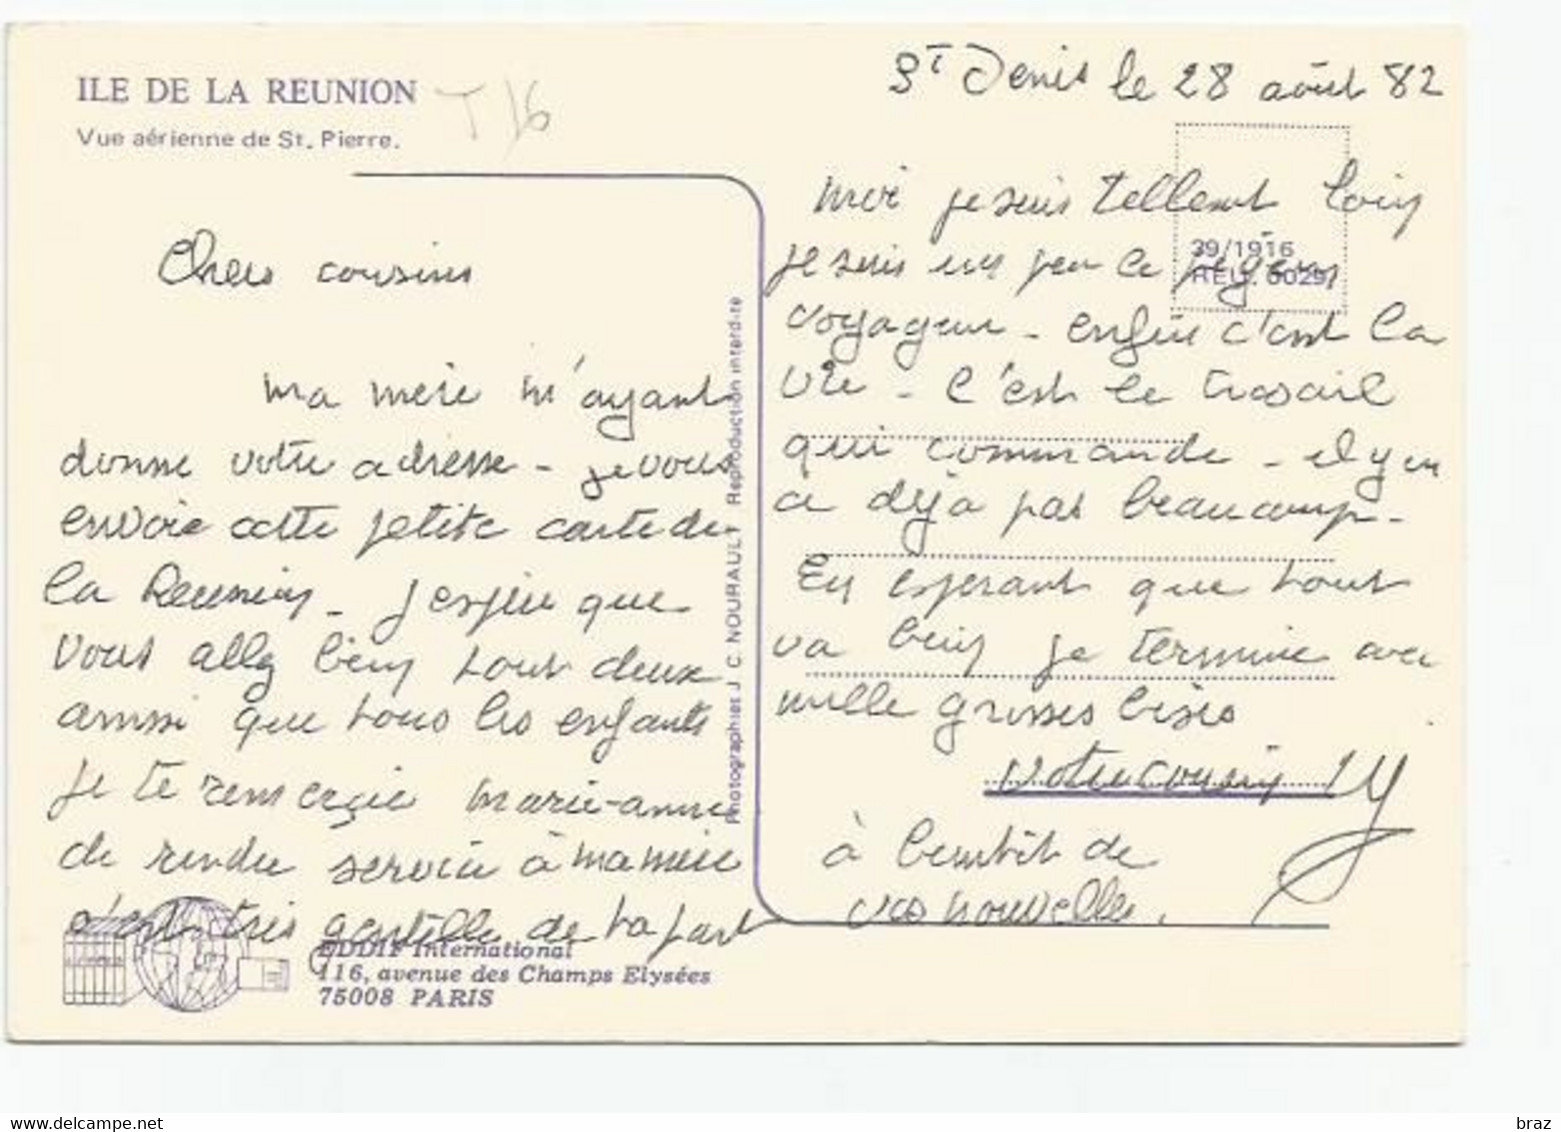 ILE DE LA REUNION
Vue aérienne de St. Pierre.
T 16
Chers cousins
ma mère m'ayant
donné votre adresse - je vous
envoie cette petite carte de
la Reunion - J'espère que
vous allez bien tout deux
ainssi que tous les enfants
je te remercie marie-anne
de rendre service à ma mère
c'est très gentille de ta part
EDDIF International
116, avenue des Champs Elysées
75008 PARIS
Photographies J. C. NOURAULT Reproduction interdite
St Denis le 28 août 82
39/1916
REU. 6029
moi je suis tellement loin
je suis un peu le pigeon
voyageur - enfin c'est la
vie - c'est le travail
qui commande - il y en
a déjà pas beaucoup -
En esperant que tout
va bien je termine avec
mille grosses bises
votre cousin
à bientôt de
vos nouvelles.
braz